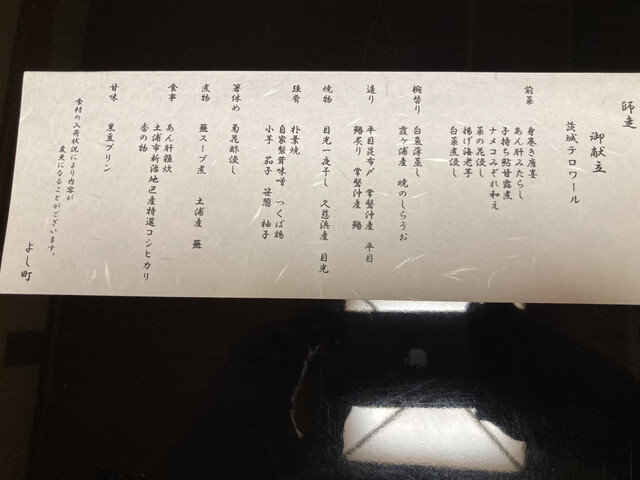 師走
御献立
茨城テロワール
前菜
身巻き唐墨
あん肝みたらし
子持ち鮎甘露煮
ナメコみぞれ和え
菜の花浸し
揚げ海老芋
白菜煮浸し
椀替り
白魚薄蒸し
霞ヶ浦産 曳のしらうお
造り
平目昆布〆 常磐沖産 平目
鰆炙り 常磐沖産 鰆
焼物
目光一夜干し 久慈浜産 目光
強肴
朴葉焼
自家製茸味噌 つくば鶏
小芋 茄子 笹葱 柚子
箸休め
菊花酢浸し
煮物
蕪スープ煮 土浦産 蕪
食事
あん肝雑炊
土浦市新治地区産特選コシヒカリ
香の物
甘味
黒豆プリン
食材の入荷状況により内容が
変更になることがございます。
よし町